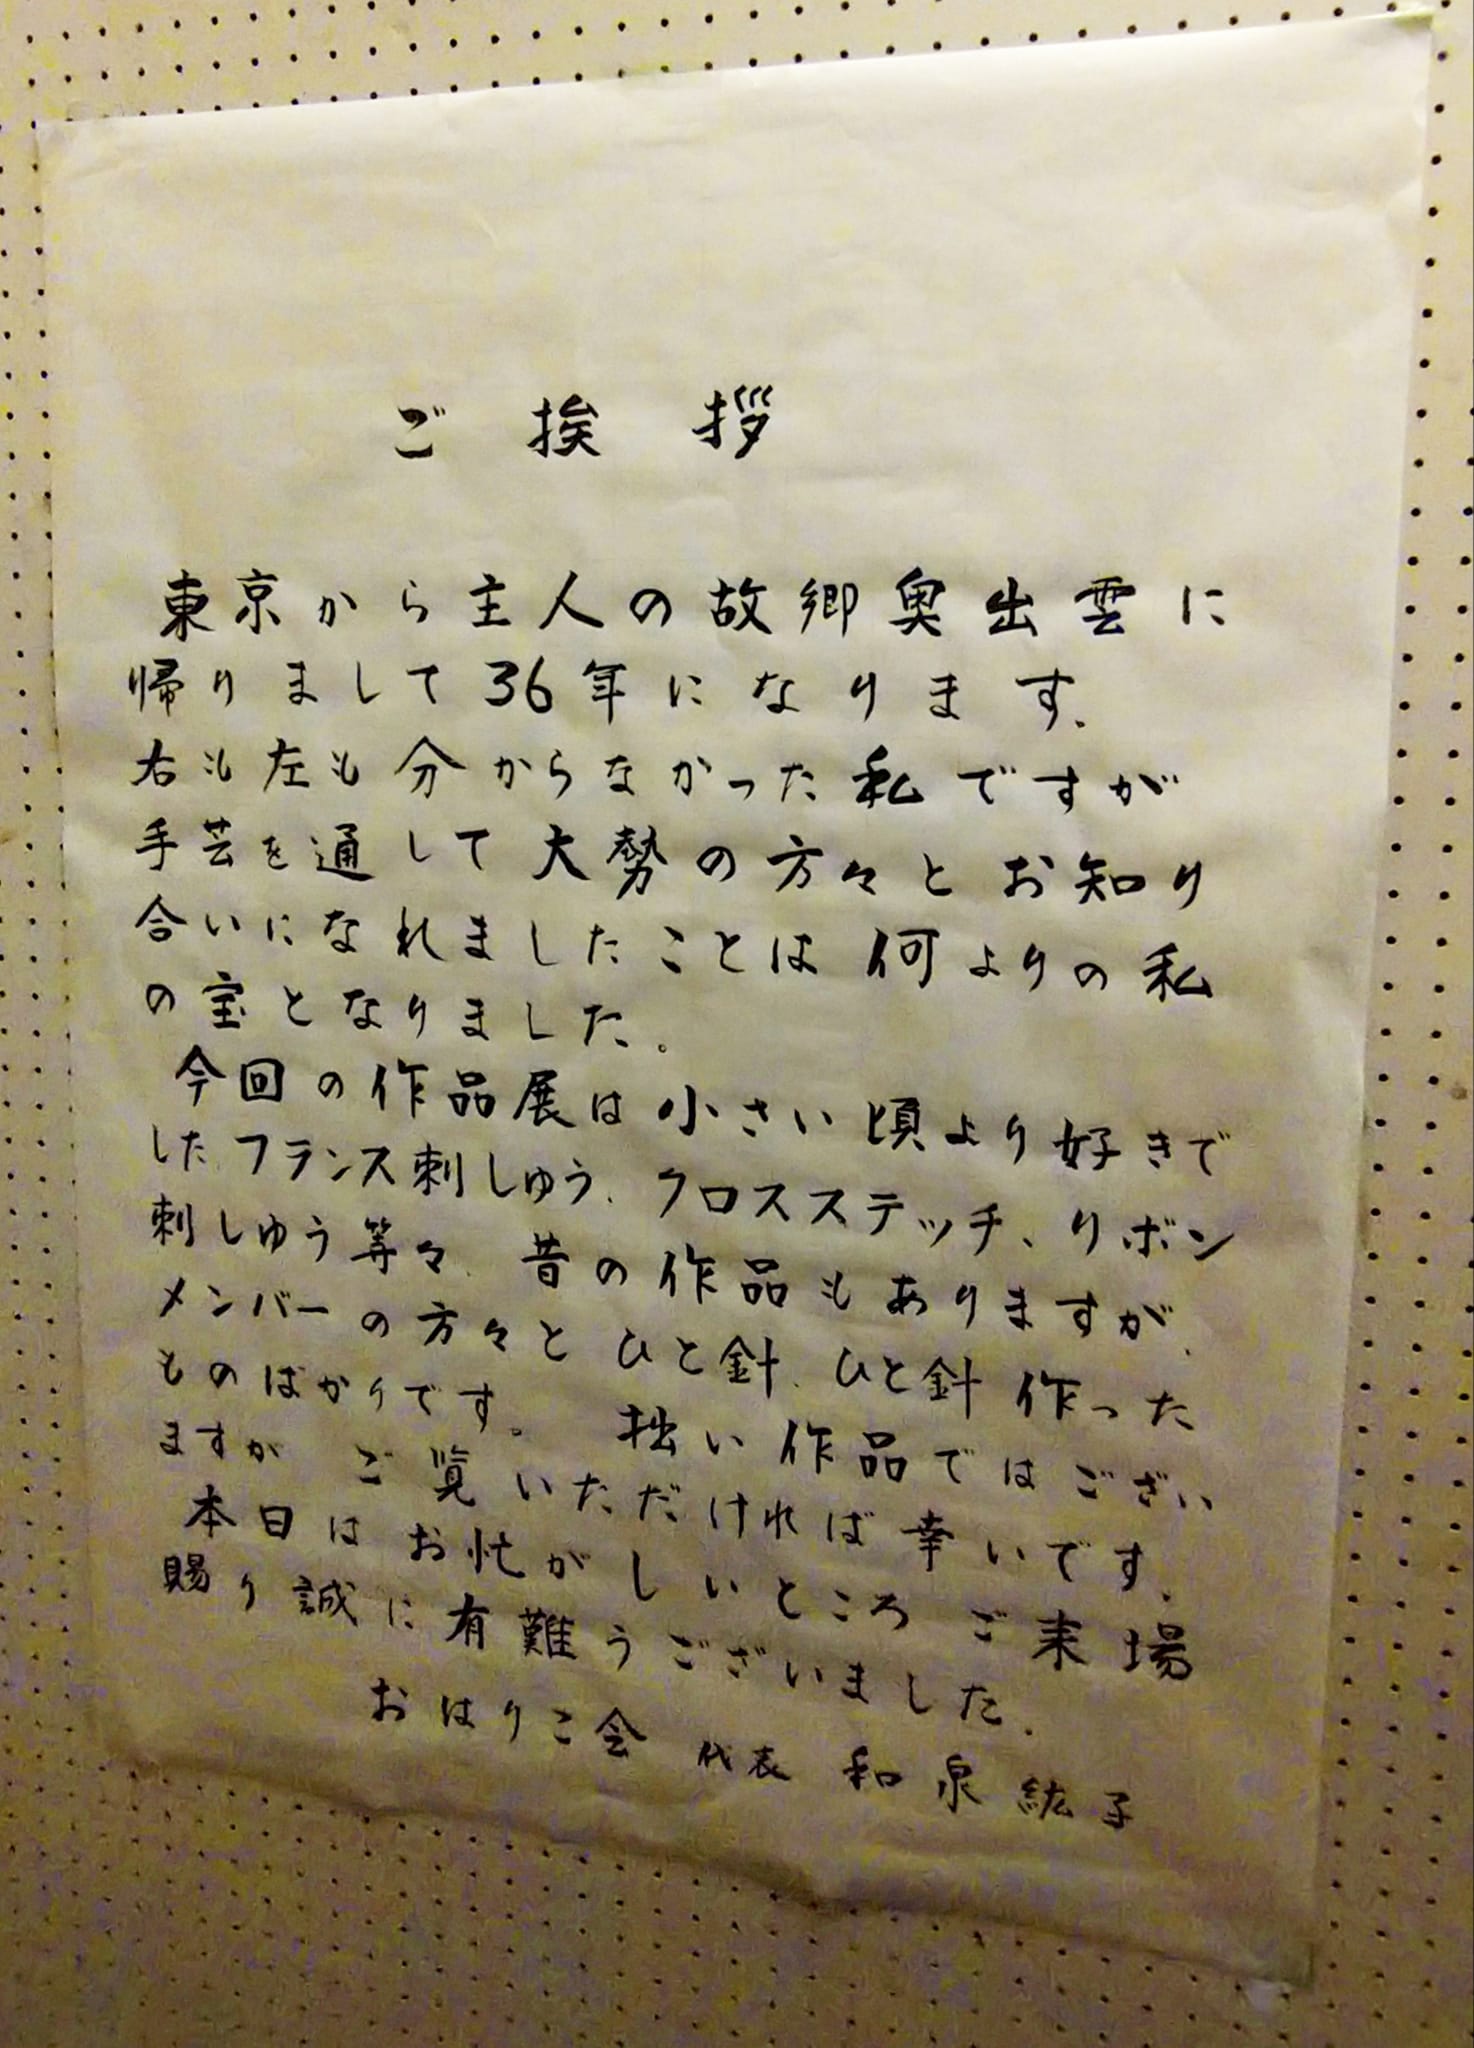 ご挨拶
東京から主人の故郷奥出雲に
帰りまして36年になります.
右も左も分からなかった私ですが
手芸を通して大勢の方々とお知り
合いになれましたことは何よりの私
の宝となりました。
今回の作品展は小さい頃より好きで
した、フランス刺しゅう、クロスステッチ、リボン
刺しゅう等々、昔の作品もありますが、
メンバーの方々とひと針、ひと針作った
ものばかりです。拙い作品ではござい
ますが ご覧いただければ幸いです.
本日はお忙がしいところ ご来場
賜り誠に有難うございました.
おはりこ会 代表 和泉紘子